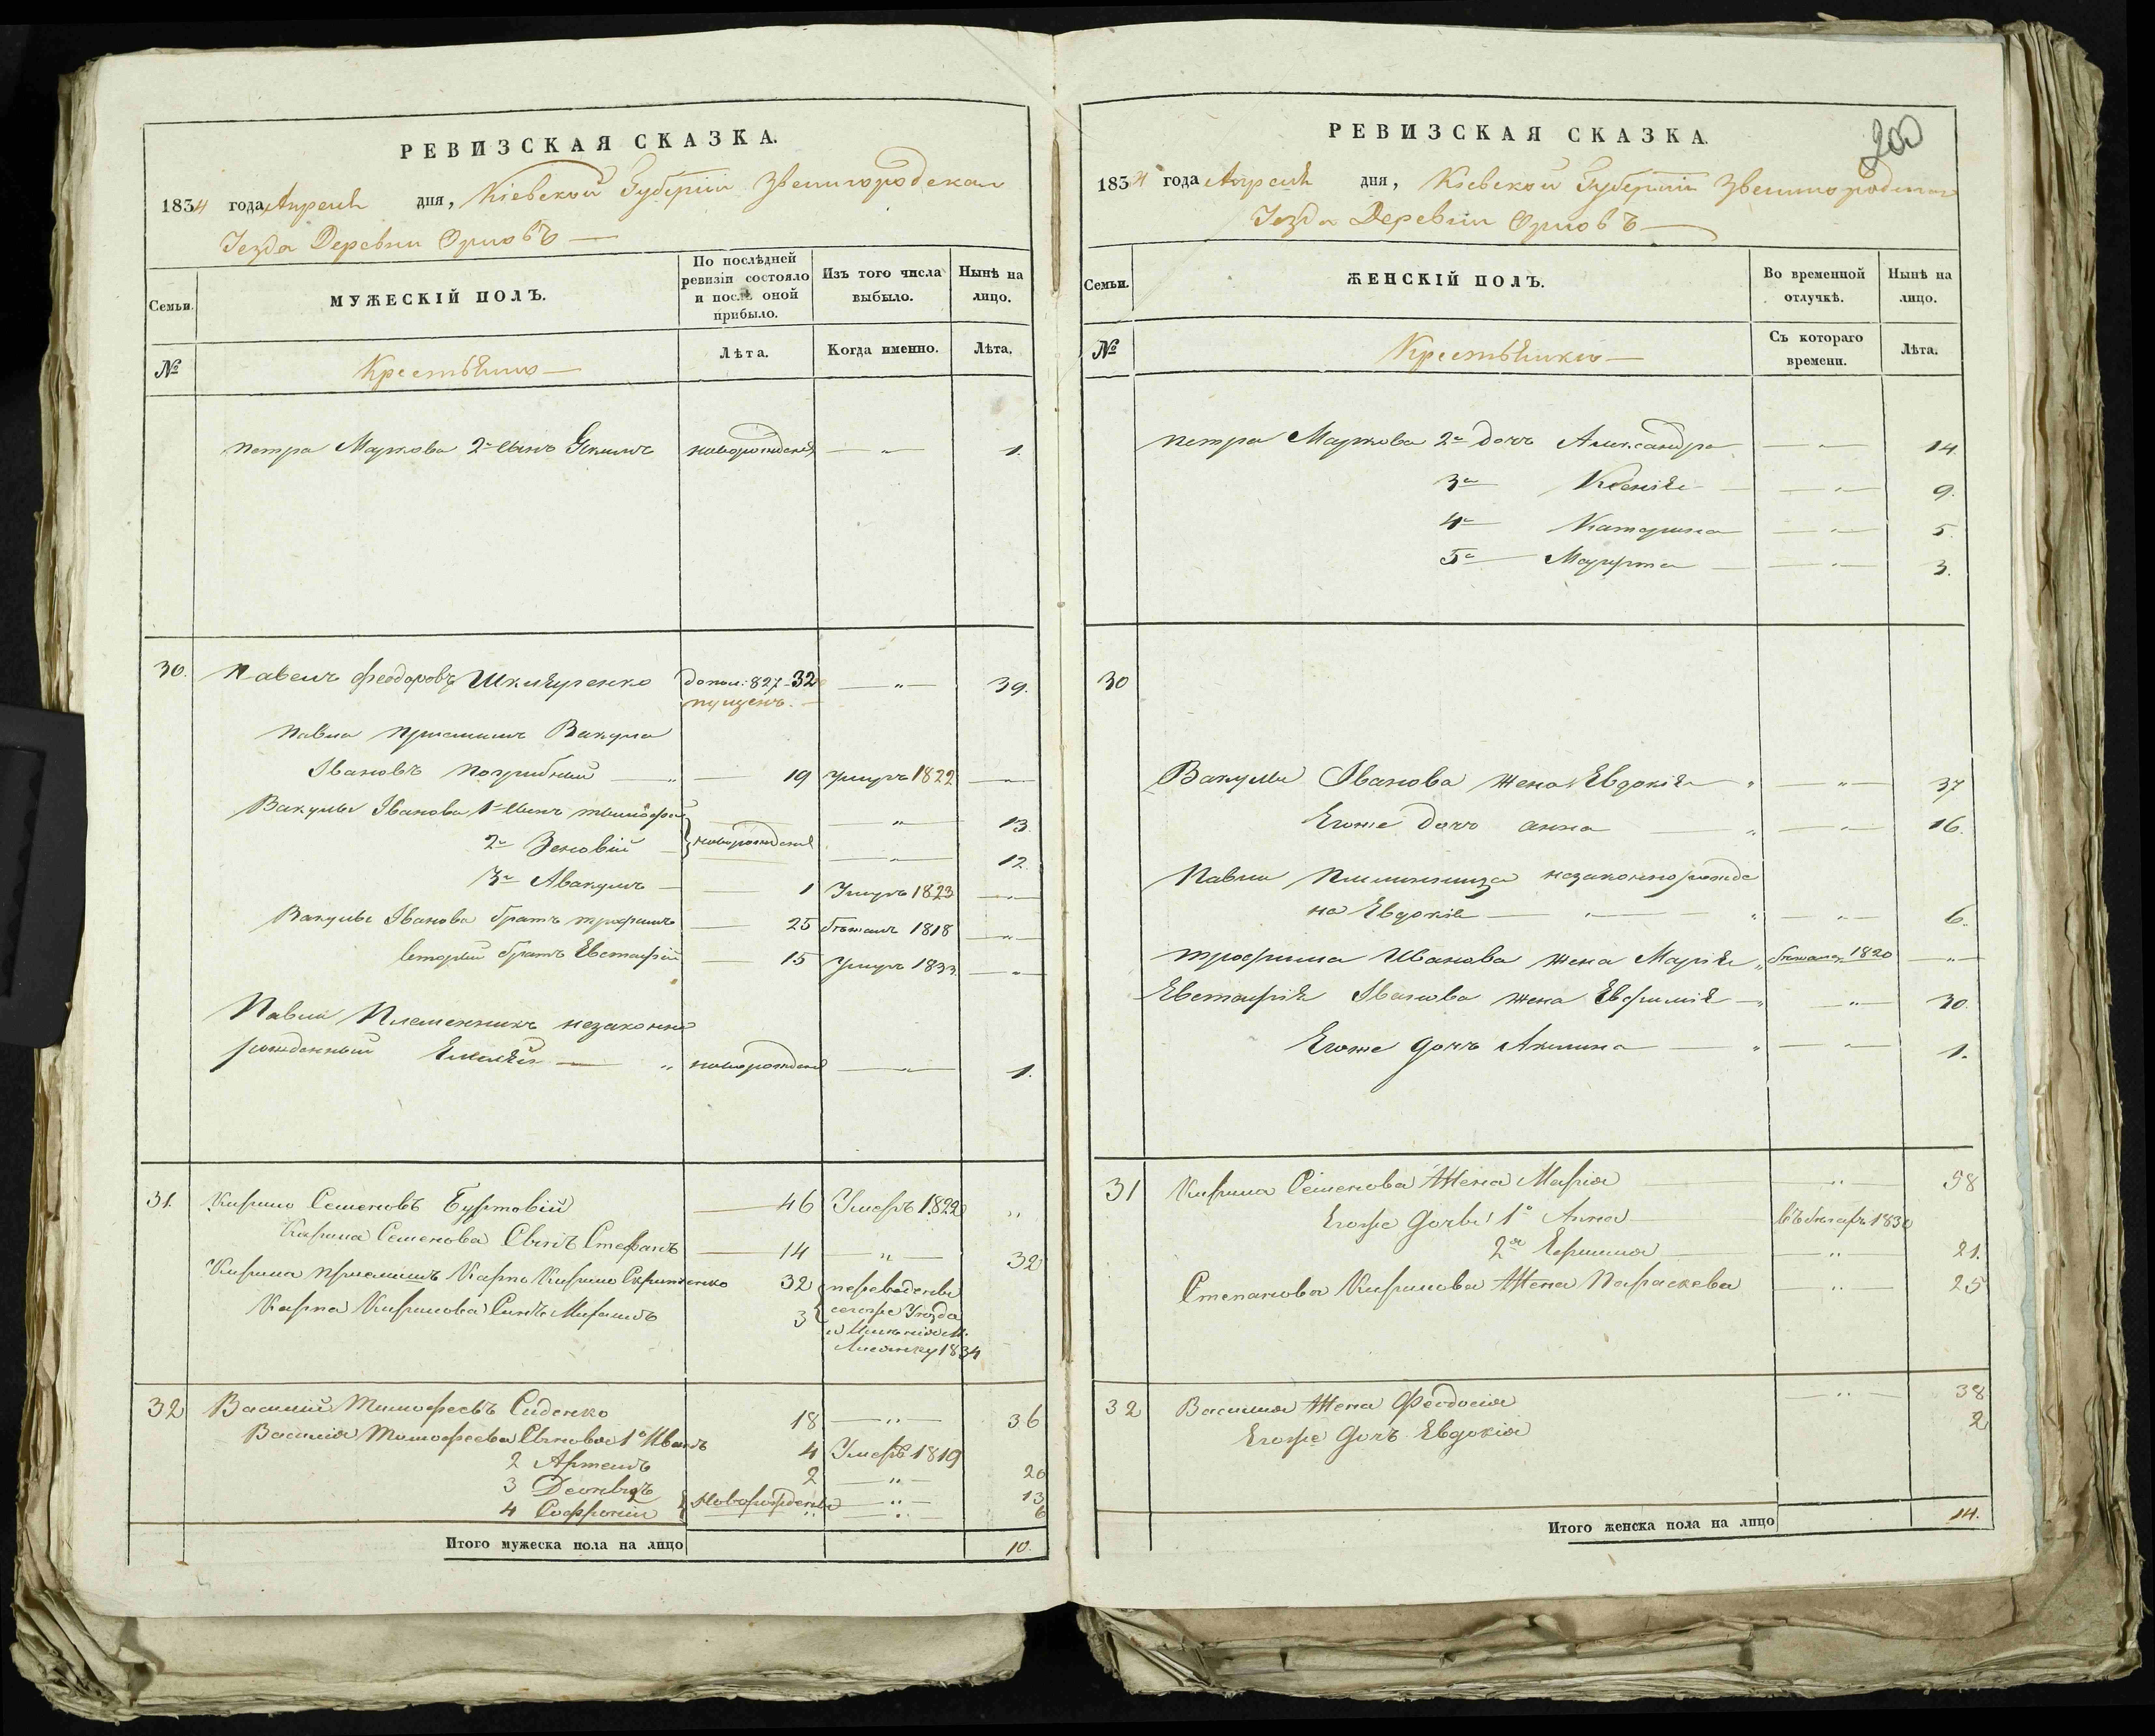 РЕВИЗСКАЯ СКАЗКА.
1834 года Апреля дня, Кіевской Губерніи Звенигородскаго
Уезда Деревни
Семьи.
МУЖЕСКІЙ ПОЛЪ.
По послѣдней ревизіи состояло и послѣ оной прибыло.
Изъ того числа выбыло.
Нынѣ на лицо.
№
Крестьяне
Лѣта.
Когда именно.
Лѣта.
Петра Маркова 2й сынъ Якимъ новорожденый — " — 1.
30. Павелъ Феодоровъ допол: 827 - 32 — " — 39.
пущенъ.
Павла приемышъ Вакула
Івановъ — " — 19 умеръ 1822 — " —
Вакулы Іванова 1й сынъ Тимофей — " — 13.
2й Зеновій новорожденые — " — 12.
3й Авакумъ — 1 Умеръ 1823 — " —
Вакулы Іванова братъ Трофимъ — 25 бѣжалъ 1818 — " —
вторый братъ Евстафій — 15 Умеръ 1833. — " —
Павла Племенникъ незаконно
рожденный — " новорожденый — " — 1.
31. Кирило Семеновъ Буртовій — 46 Умеръ 1822 "
Кирила Семенова Сынъ Стефанъ — 14 — " — 32
Кирила приемышъ Карпо Кирило 32 переведены
Карпа Кирилова Сынъ 3 сегоже Уезда
Лисянку 1834
32 Василий Тимофеевъ Сиденко 18 — " — 36
Василія Тимофеева Сыновья 1й Иванъ 4 Умеръ 1819
2 Артемъ 2 — " — 20
3 13
4 Софроній Новорожденые — " — 6
Итого мужеска пола на лицо 10.
РЕВИЗСКАЯ СКАЗКА.
200
1834 года Апреля дня, Кіевской Губерніи Звенигородскаго
Уезда Деревни
Семьи.
ЖЕНСКІЙ ПОЛЪ.
Во временной отлучкѣ.
Нынѣ на лицо.
№
Крестьянки
Съ котораго времени.
Лѣта.
Петра Маркова 2я дочь Александра — " — 14.
3я Ксенія — " — 9.
4я Катерина — " — 5.
5я Марфта — " — 3.
30
Вакулы Іванова жена Евдокія " — " — 37
Егоже дочь Анна — " — " — 16.
Павла незаконнорожде
на Евдокія — " — " — " — 6.
Трофима Иванова жена Марія " бѣжала 1820 — " —
Евстафія Іванова жена Евфимія — " " — 30.
Егоже дочь Акилина — " — " — 1.
31 Кирила Семенова Жена Марія — " — 58
Егоже дочьи 1я Анна въ бѣгахъ 1830
2я — " — 21.
Степанова Кирилова Жена Параскева — " — 25
32 Василия Жена Феодосия — " — 38
Егоже дочъ Евдокія 2
Итого женска пола на лицо 14.